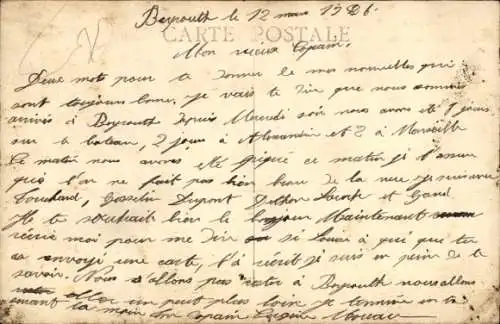 Beyrouth le 12 mars 1926.
CARTE POSTALE
Mon vieux Copain,
Deux mots pour te donner de mes nouvelles qui
sont toujours bonne, je vais te dire que nous sommes
arrivés à Beyrouth depuis Mercredi soir nous avons été 7 jours
sur le bateau, 2 jours à Alexandrie et 2 à Marseille
Ce matin nous avons été piqué ce matin je t'assure
que l'on ne fait pas bien beau de la
Touchard, Gosselin Dupont et Gand
te souhait bien le bonjour Maintenant
récris moi pour me dire si à que que tu
as envoyé une carte, t'a écrit je suis en peine de le
savoir. Nous n'allons pas rester à Beyrouth nous allons
un peut plus loin je termine en te
la main ton Copain